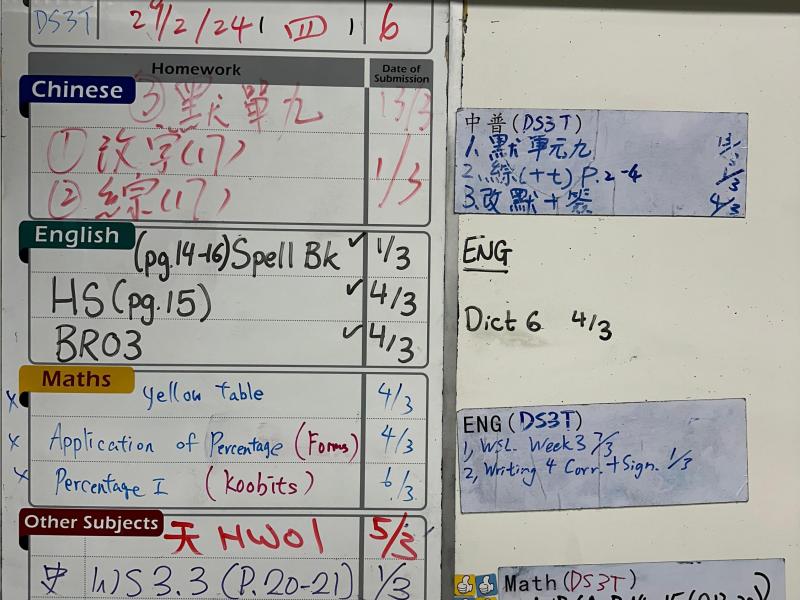 DS3T 29/2/24 ( 四 ) 6
Homework Date of Submission
Chinese
③ 默單九 13/3
① 改字(17) 1/3
② 綜(17)
English
(pg.14-16) Spell Bk ✓ 1/3
HS (pg.15) ✓ 4/3
BR03 ✓ 4/3
Maths
x Yellow Table 4/3
x Application of Percentage (Forms) 4/3
x Percentage I (Koobits) 6/3
Other Subjects
天 HW01 5/3
史 WS 3.3 (P.20-21) 1/3
中普 (DS3T)
1. 默單元九
2. 綜(十七) P.2-4 1/3
3. 改默+簽 4/3
ENG
Dict 6 4/3
ENG (DS3T)
1, WSL. Week 3 7/3
2, Writing 4 Corr. + Sign. 1/3
Math (DS3T)